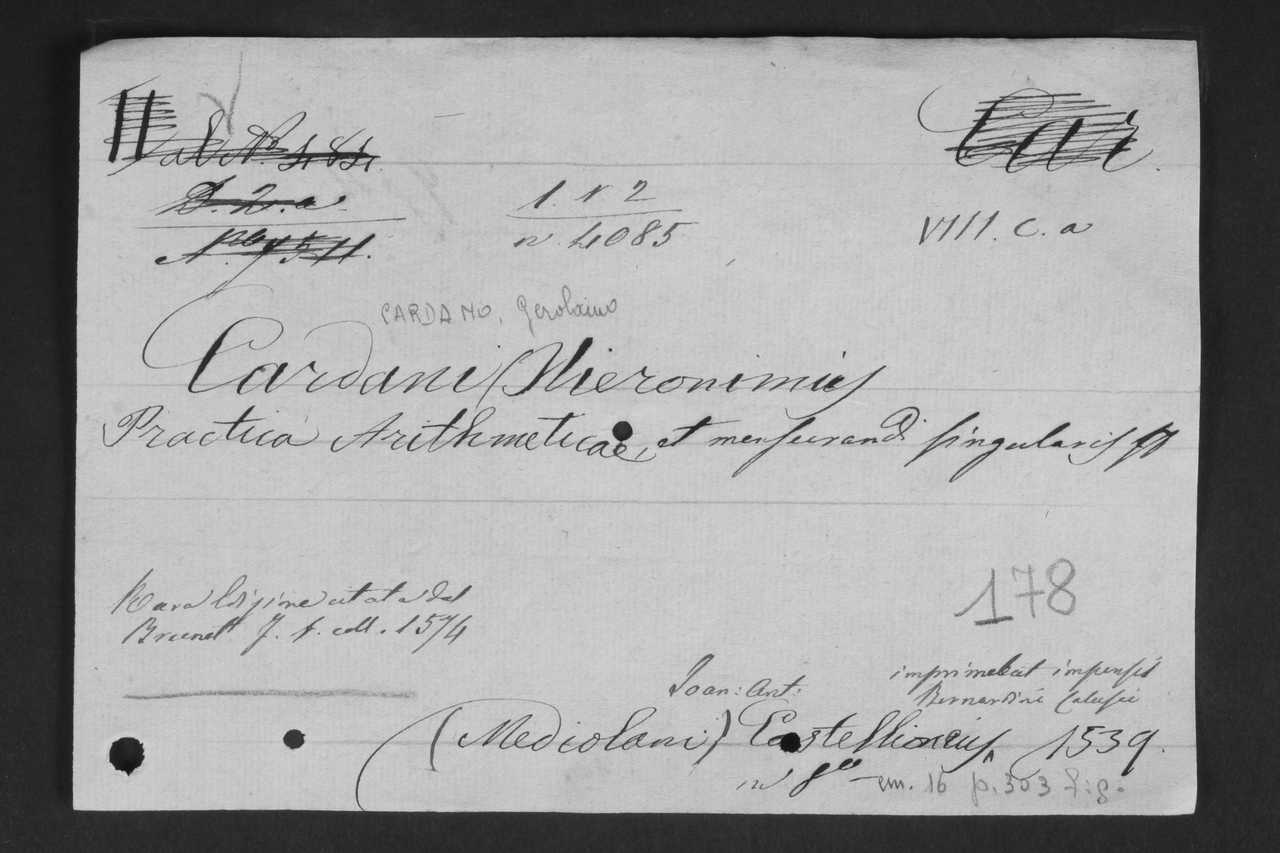 Car
D. 2. a
1. r 2
n. 4085
VIII. C. a
CARDANO, Gerolamo
Cardani Hieronimus
Practica Arithmeticae, et mensurandi singularis
Rara edizione citata dal
Brunet T. 1. coll. 1574
178
Joan: Ant:
imprimebat impensis
Bernardini Calusci
(Mediolani) Castellioneus 1539.
in 8º cm. 16 p. 303 fig.